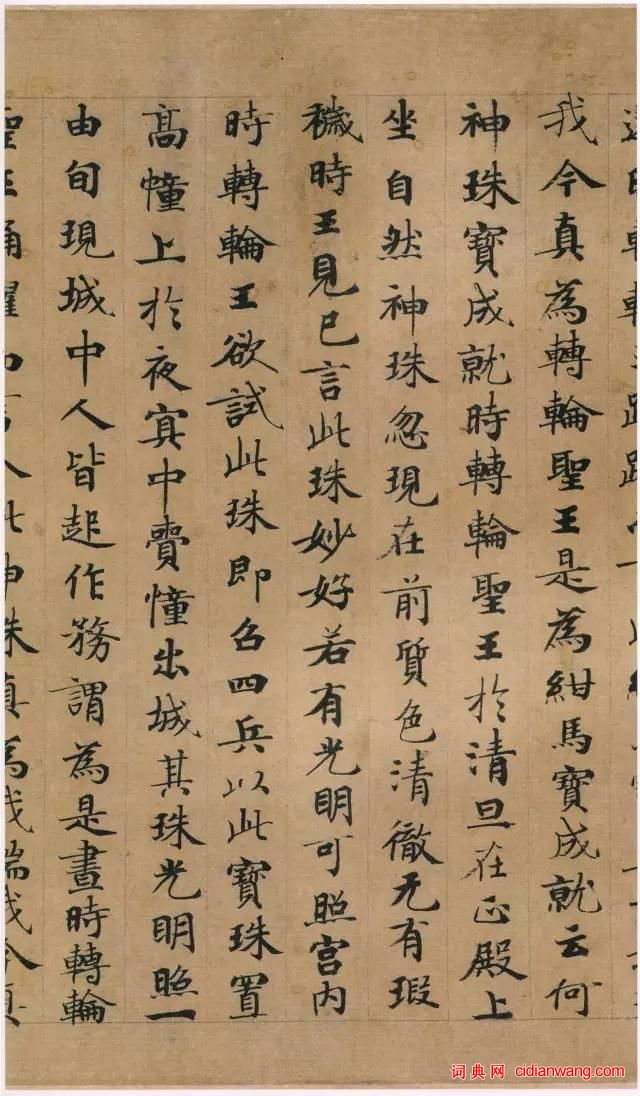 我今真為轉輪聖王是為紺馬寶成就云何
神珠寶成就時轉輪聖王於清旦在正殿上
坐自然神珠忽現在前質色清徹无有瑕
穢時王見已言此珠妙好若有光明可照宮内
時轉輪王欲試此珠即召四兵以此寶珠置
高幢上於夜冥中賷憧出城其珠光明照一
由旬現城中人皆起作務謂為是晝時轉輪
聖王踊躍而言今此神珠真為我瑞我今真
词典网 cidianwang.com